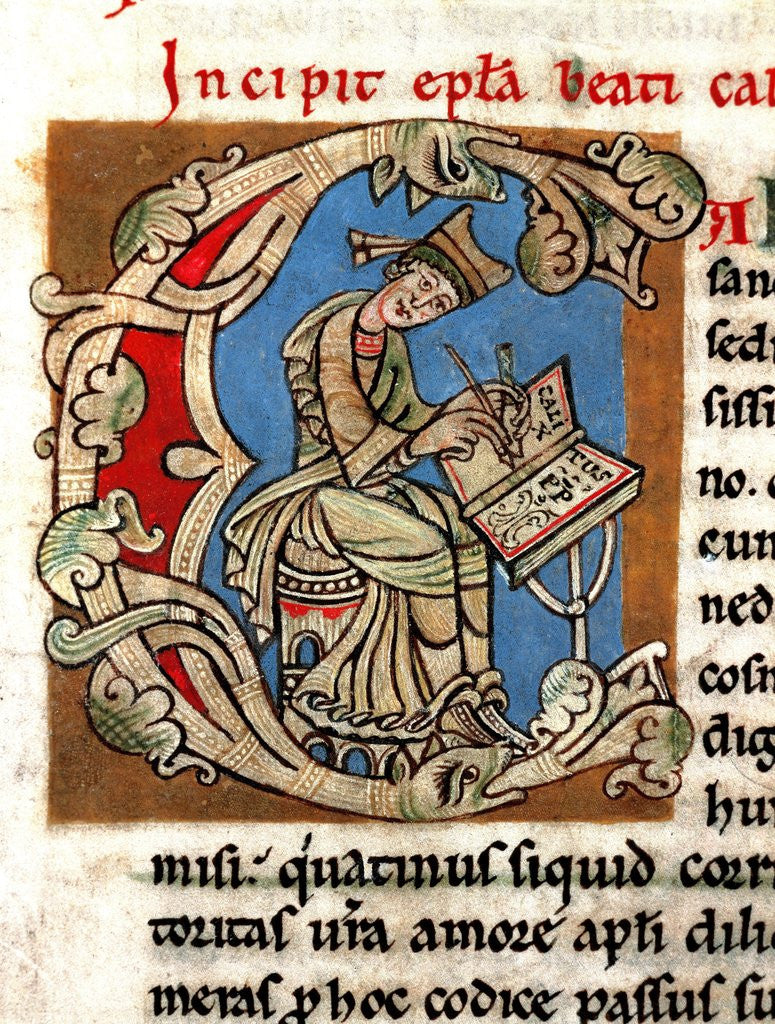 Incipit epl̃a beati cal
A
sanc
sedi
sissi
no. 
cum
ned
cosm
dig
hui
CALI
X
misi. q̓uatinus siquid corri
toritas ur̃a amore apl̃i dili
meras ꝑ hoc codice passus su